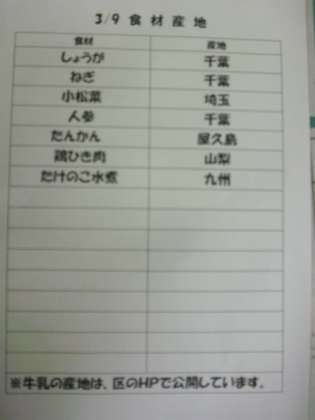 3/9 食材産地
食材 産地
しょうが 千葉
ねぎ 千葉
小松菜 埼玉
人参 千葉
たんかん 屋久島
鶏ひき肉 山梨
たけのこ水煮 九州
※牛乳の産地は、区のHPで公開しています。